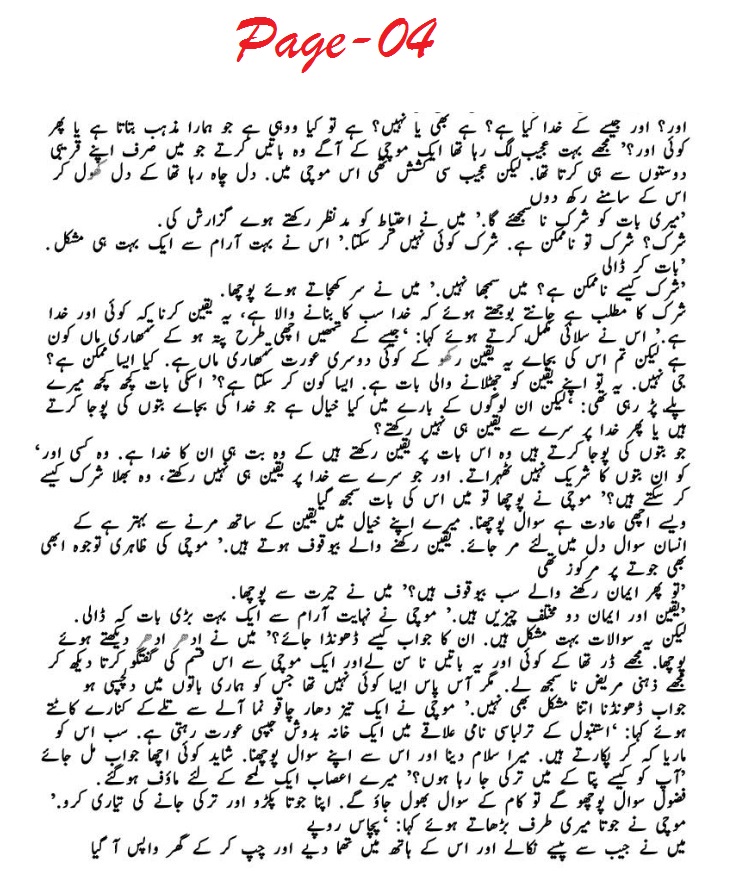 Page-04
اور؟ اور جیسے کے خدا کیا ہے؟ ہے بھی یا نہیں؟ ہے تو کیا ووہی ہے جو ہمارا مذہب بتاتا ہے یا پھر
کوئی اور؟’ مجھے بہت عجیب لگ رہا تھا ایک موچی کے آگے وہ باتیں کرتے جو میں صرف اپنے قریبی
دوستوں سے ہی کرتا تھا. لیکن عجیب سی کشش تھی اس موچی میں. دل چاہ رہا تھا کے دل کھول کر
اس کے سامنے رکھ دوں
’میری بات کو شرک نا سمجھئے گا.’ میں نے احتیاط کو مدنظر رکھتے ہوے گزارش کی.
شرک؟ شرک تو ناممکن ہے. شرک کوئی نہیں کر سکتا.’ اس نے بہت آرام سے ایک بہت ہی مشکل.
’بات کر ڈالی
’شرک کیسے ناممکن ہے؟ میں سمجھا نہیں.’ میں نے سر کھجاتے ہوئے پوچھا.
شرک کا مطلب ہے جانتے بوجھتے ہوئے کہ خدا سب کا بنانے والا ہے، یہ یقین کرنا کہ کوئی اور خدا
ہے.’ اس نے سلائی مکمل کرتے ہوئے کہا: ‘جیسے کے تمھیں اچھی طرح پتہ ہو کے تمھاری ماں کون
ہے لیکن تم اس کی بجاے یہ یقین رکھو کے کوئی دوسری عورت تمھاری ماں ہے. کیا ایسا ممکن ہے؟
جی نہیں. یہ تو اپنے یقین کو جھٹلانے والی بات ہے. ایسا کون کر سکتا ہے؟’ اسکی بات کچھ کچھ میرے
پلے پڑ رہی تھی: ‘لیکن ان لوگوں کے بارے میں کیا خیال ہے جو خدا کی بجاے بتوں کی پوجا کرتے
ہیں یا پھر خدا پر سرے سے یقین ہی نہیں رکھتے؟
جو بتوں کی پوجا کرتے ہیں وہ اس بات پر یقین رکھتے ہیں کے وہ بت ہی ان کا خدا ہے. وہ کسی اور‘
کو ان بتوں کا شریک نہیں ٹھہراتے. اور جو سرے سے خدا پر یقین ہی نہیں رکھتے، وہ بھلا شرک کیسے
کر سکتے ہیں؟’ موچی نے پوچھا تو میں اس کی بات سمجھ گیا
ویسے اچھی عادت ہے سوال پوچھنا. میرے اپنے خیال میں یقین کے ساتھ مرنے سے بہتر ہے کے
انسان سوال دل میں لئے مر جائے. یقین رکھنے والے بیوقوف ہوتے ہیں.’ موچی کی ظاہری توجوہ ابھی
بھی جوتے پر مرکوز تھی
’تو پھر ایمان رکھنے والے سب بیوقوف ہیں؟’ میں نے حیرت سے پوچھا.
’یقین اور ایمان دو مختلف چیزیں ہیں.’ موچی نے نہایت آرام سے ایک بہت بڑی بات کہ ڈالی.
لیکن یہ سوالات بہت مشکل ہیں. ان کا جواب کیسے ڈھونڈا جائے؟’ میں نے ادھر ادھر دیکھتے ہوئے
پوچھا. مجھے ڈر تھا کے کوئی اور یہ باتیں نا سن لےاور ایک موچی سے اس قسم کی گفتگو کرتا دیکھ کر
مجھے ذہنی مریض نا سمجھ لے. مگر آس پاس ایسا کوئی نہیں تھا جس کو ہماری باتوں میں دلچسپی ہو
جواب ڈھونڈنا اتنا مشکل بھی نہیں.’ موچی نے ایک تیز دھار چاقو نما آلے سے تلےکے کنارے کاٹتے
ہوئے کہا: ‘استنبول کے ترلباسی نامی علاقے میں ایک خانہ بدوش جپسی عورت رہتی ہے. سب اس کو
ماریا کہ کر پکارتے ہیں. میرا سلام دینا اور اس سے اپنے سوال پوچھنا. شاید کوئی اچھا جواب مل جائے
’آپ کو کیسے پتا کے میں ترکی جا رہا ہوں؟’ میرے اعصاب ایک لمحے کے لئے ماؤف ہوگئے.
فضول سوال پوچھو گے تو کام کے سوال بھول جاؤ گے. اپنا جوتا پکڑو اور ترکی جانے کی تیاری کرو.’
موچی نے جوتا میری طرف بڑھاتے ہوئے کہا: ‘پچاس روپے
میں نے جیب سے پیسے نکالے اور اس کے ہاتھ میں تھما دیے اور چپ کر کے گھر واپس آ گیا